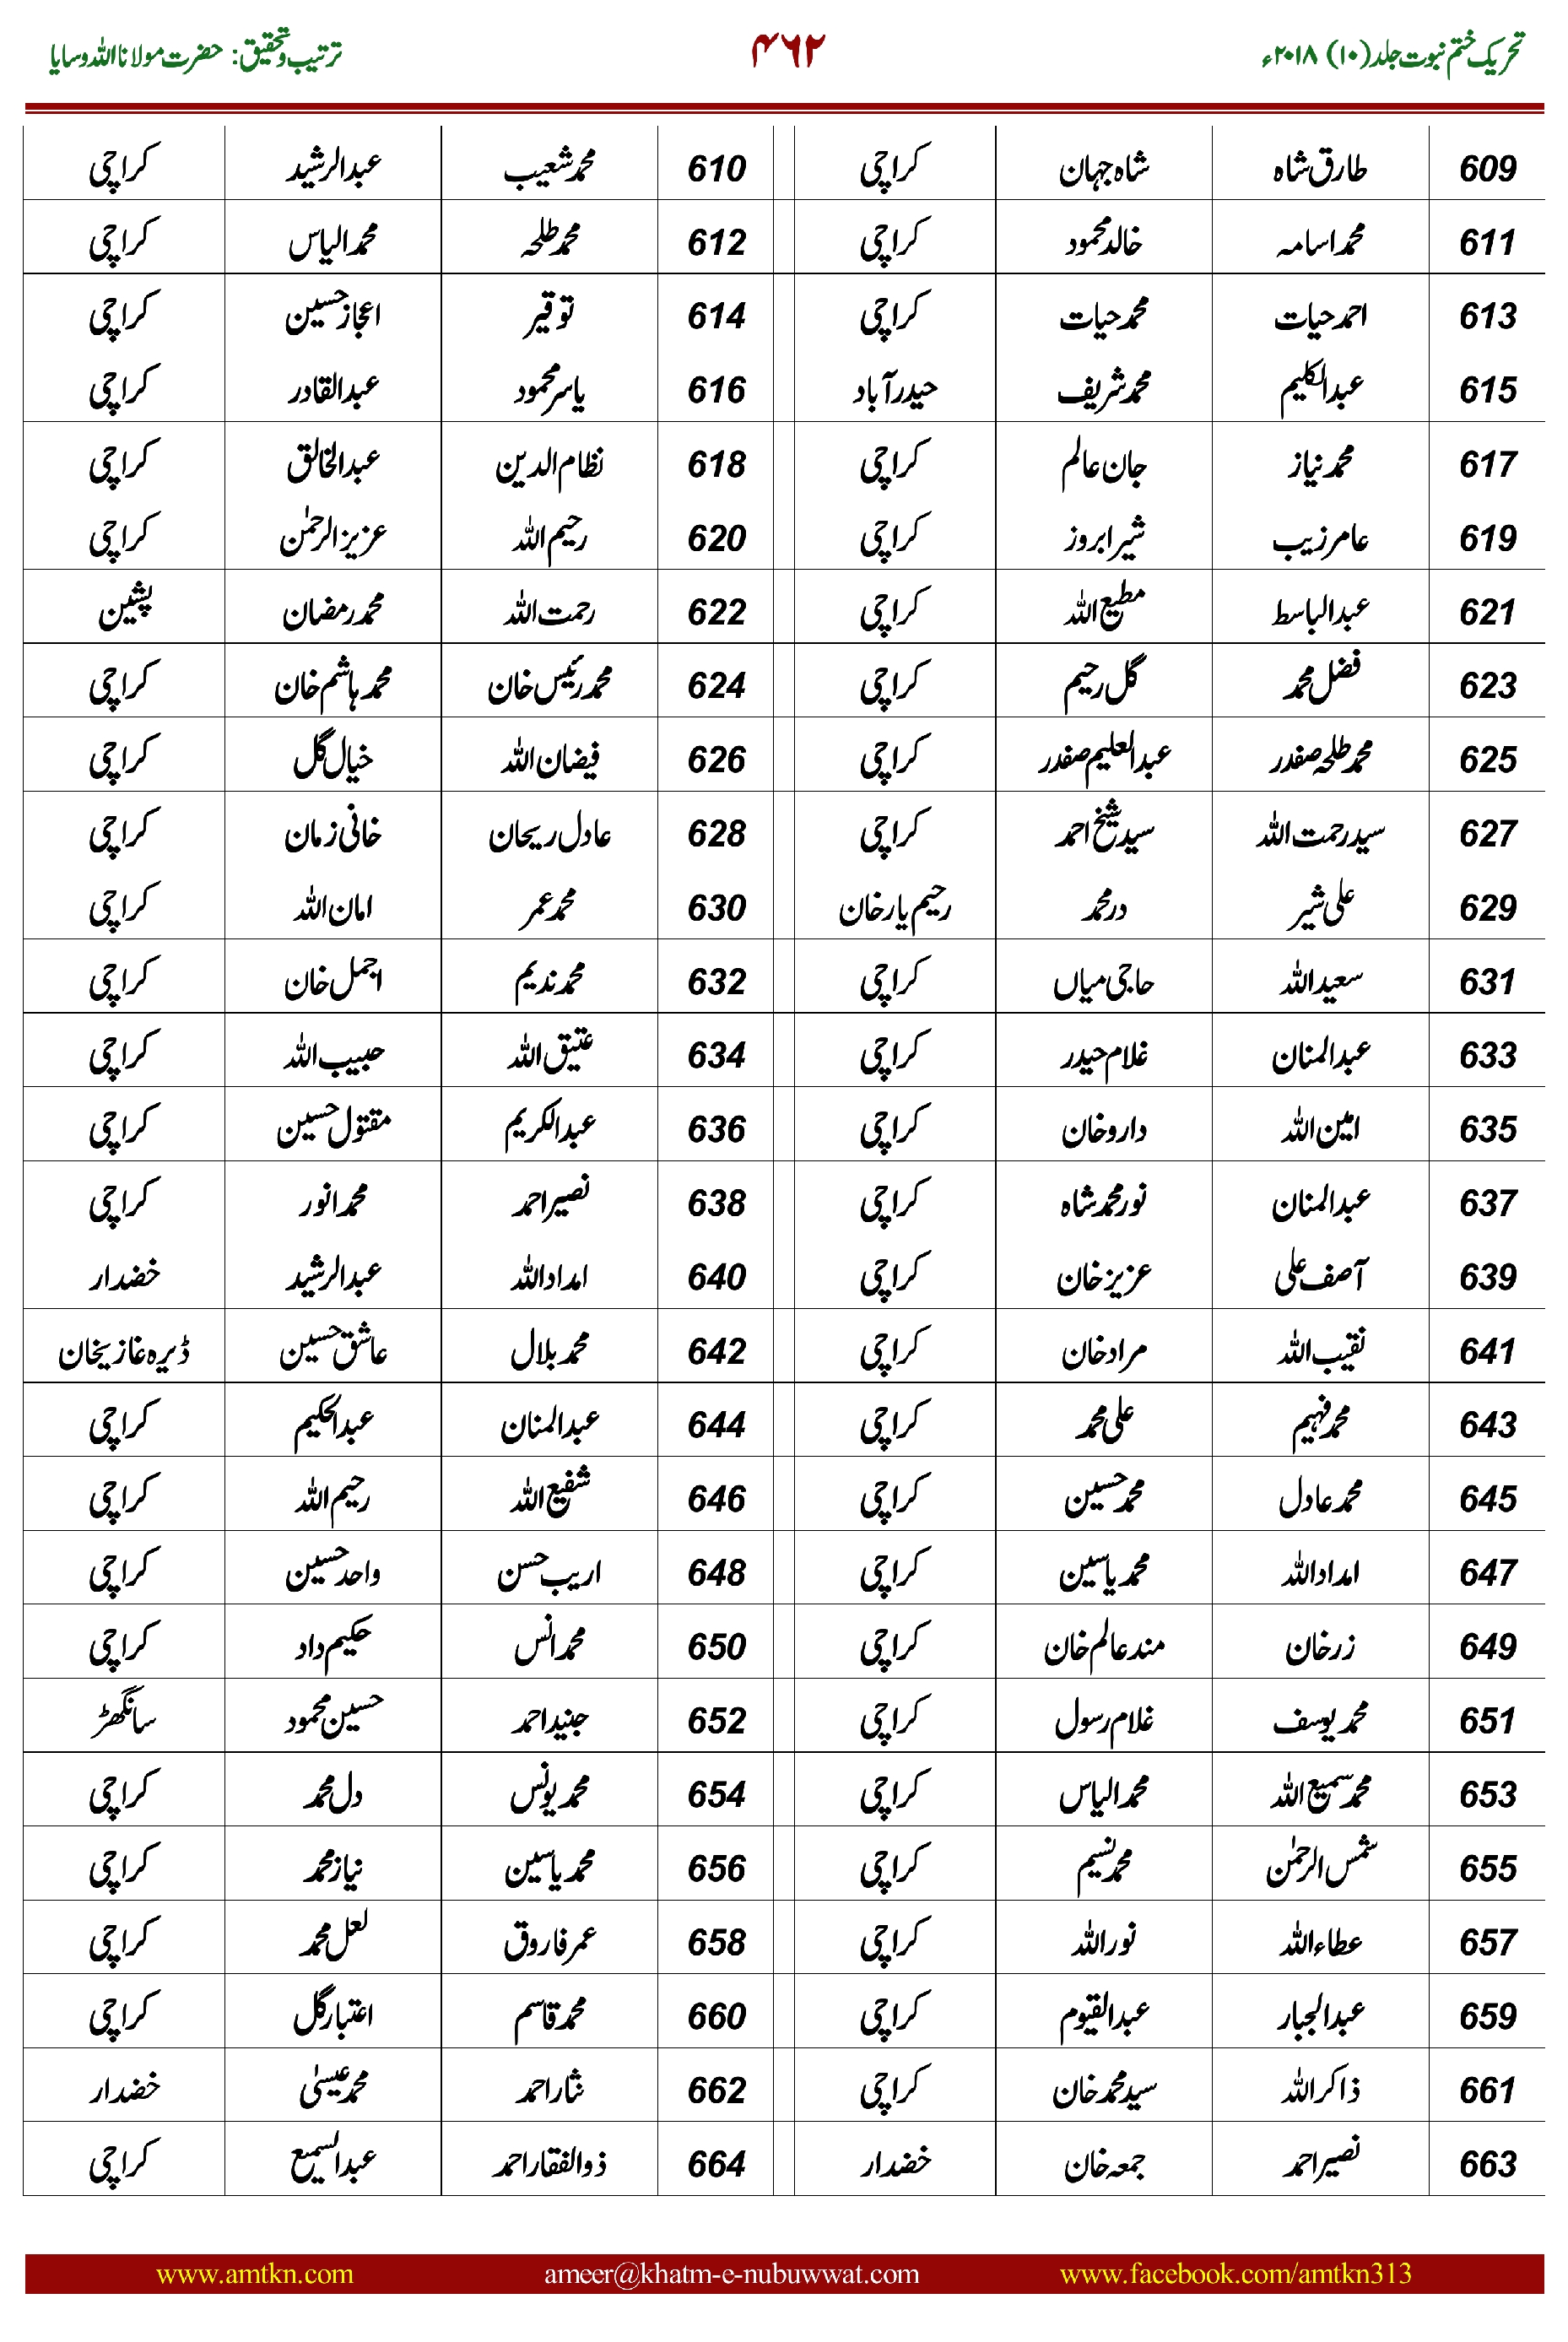 تحریک ختم نبوت جلد (۱۰) ۲۰۱۸ء ۴۶۲ ترتیب و تحقیق: حضرت مولانا اللہ وسایا
609 طارق شاہ شاہ جہان کراچی 610 محمد شعیب عبدالرشید کراچی
611 محمد اسامہ خالد محمود کراچی 612 محمد طلحہ محمد الیاس کراچی
613 احمد حیات محمد حیات کراچی 614 توقیر اعجاز حسین کراچی
615 عبدالکلیم محمد شریف حیدرآباد 616 یاسر محمود عبدالقادر کراچی
617 محمد نیاز جان عالم کراچی 618 نظام الدین عبدالخالق کراچی
619 عامر زیب شیر ابروز کراچی 620 رحیم اللہ عزیز الرحمٰن کراچی
621 عبدالباسط مطیع اللہ کراچی 622 رحمت اللہ محمد رمضان پشین
623 فضل محمد گل رحیم کراچی 624 محمد رئیس خان محمد ہاشم خان کراچی
625 محمد طلحہ صفدر عبدالعلیم صفدر کراچی 626 فیضان اللہ خیال گل کراچی
627 سید رحمت اللہ سید شیخ احمد کراچی 628 عادل ریحان خانی زمان کراچی
629 علی شیر در محمد رحیم یار خان 630 محمد عمر امان اللہ کراچی
631 سعید اللہ حاجی میاں کراچی 632 محمد ندیم اجمل خان کراچی
633 عبدالمنان غلام حیدر کراچی 634 عتیق اللہ حبیب اللہ کراچی
635 امین اللہ دارو خان کراچی 636 عبدالکریم مقتول حسین کراچی
637 عبدالمنان نور محمد شاہ کراچی 638 نصیر احمد محمد انور کراچی
639 آصف علی عزیز خان کراچی 640 امداد اللہ عبدالرشید خضدار
641 نقیب اللہ مراد خان کراچی 642 محمد بلال عاشق حسین ڈیرہ غازیخان
643 محمد فہیم علی محمد کراچی 644 عبدالمنان عبدالحکیم کراچی
645 محمد عادل محمد حسین کراچی 646 شفیع اللہ رحیم اللہ کراچی
647 امداد اللہ محمد یاسین کراچی 648 اریب حسن واحد حسین کراچی
649 زر خان مند عالم خان کراچی 650 محمد انس حکیم داد کراچی
651 محمد یوسف غلام رسول کراچی 652 جنید احمد حسین محمود سانگھڑ
653 محمد سمیع اللہ محمد الیاس کراچی 654 محمد یونس دل محمد کراچی
655 شمس الرحمٰن محمد نسیم کراچی 656 محمد یاسین نیاز محمد کراچی
657 عطاء اللہ نور اللہ کراچی 658 عمر فاروق لعل محمد کراچی
659 عبدالجبار عبدالقیوم کراچی 660 محمد قاسم اعتبار گل کراچی
661 ذاکر اللہ سید محمد خان کراچی 662 نثار احمد محمد عیسیٰ خضدار
663 نصیر احمد جمعہ خان خضدار 664 ذوالفقار احمد عبدالسمیع کراچی
www.amtkn.com ameer@khatm-e-nubuwwat.com www.facebook.com/amtkn313